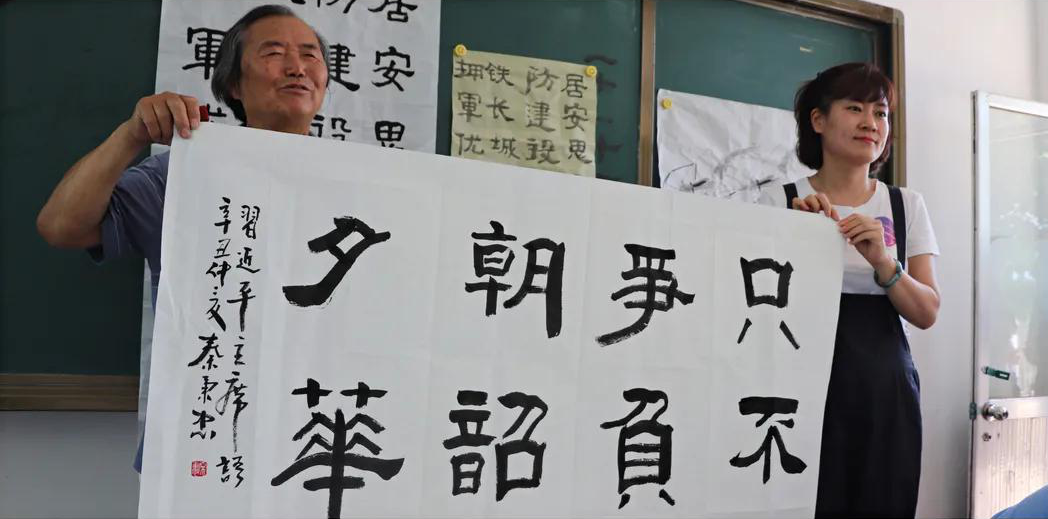 只爭朝夕
不負韶華
習近平主席語
辛丑仲夏秦
居安思
防建設
铁长城
拥軍优
居安思
防建設
軍